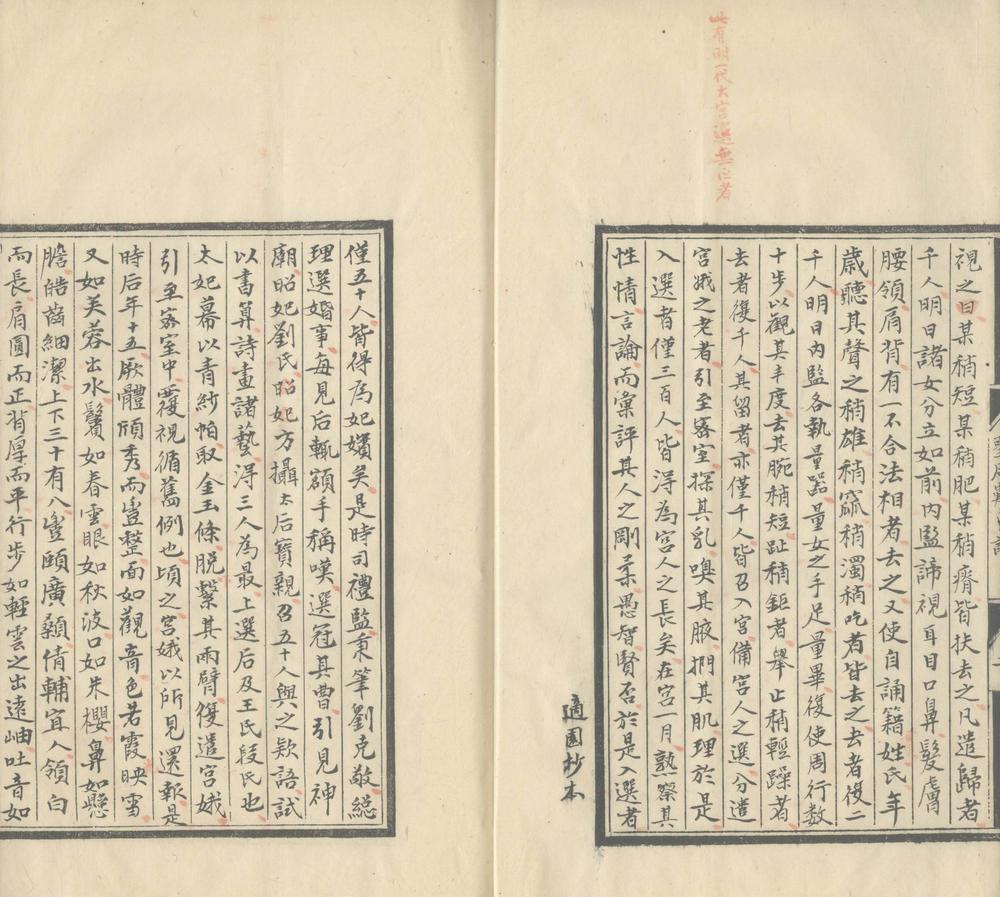 此有明一代大宮選無正者
視之曰某稍短某稍肥某稍瘠皆扶去之凡遣歸者
千人明日諸女分立如前內監諦視耳目口鼻髮膚
腰領肩背有一不合法相者去之又使自誦籍姓氏年
歲聽其聲之稍雄稍窳稍濁稍吃者皆去之去者復二
千人明日內監各執量器量女之手足量畢復使周行數
十步以觀其丰度去其腕稍短趾稍鉅者舉止稍輕躁者
去者復千人其留者亦僅千人皆召入宮備宮人之選分遣
宮娥之老者引至密室探其乳嗅其腋捫其肌理於是
入選者僅三百人皆得為宮人之長矣在宮一月熟察其
性情言論而彙評其人之剛柔愚智賢否於是入選者
適園抄本
僅五十人皆得為妃嬪矣是時司禮監秉筆劉克敬總
理選婚事每見后輒額手稱嘆選冠其曹引見神
廟昭妃劉氏昭妃方攝太后寶親召五十人與之欵語試
以書算詩畫諸藝得三人為最上選后及王氏段氏也
太妃幕以青紗帕取金玉條脫繫其兩臂復遣宮娥
引至密室中覆視循舊例也頃之宮娥以所見還報是
時后年十五厥體頎秀而豐整面如觀音色若霞映雪
又如芙蓉出水鬢如春雲眼如秋波口如朱櫻鼻如懸
膽皓齒細潔上下三十有八豐頤廣顙倩輔宜人領白
而長肩圓而正背厚而平行步如輕雲之出遠岫吐音如